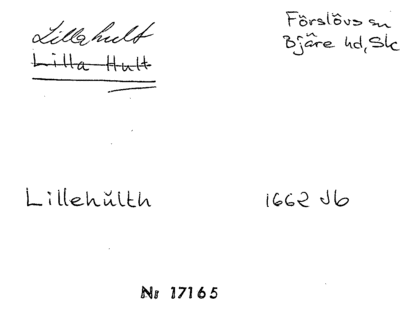 Lillahult
Lilla Hult
Förslövs sn
Bjäre hd, Sk
Lillehŭlth
1662 Jb
Nr 17165